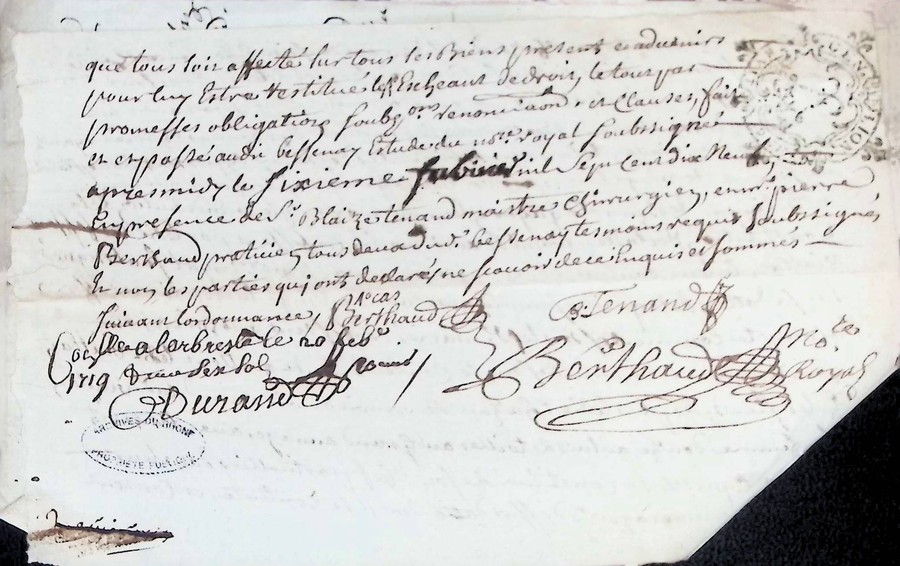 que tous soit affecté sur tous les Biens present et advenirs
pour luy Estre restitués Escheant de droit, le tout par
promesses obligations soubz^ons renonciaons et clauses, fait
et et passé audit bessenay Estude du no^re royal soubssigné
apres midy le sixieme fabvrier mil sept cent dix neuf,
En presence de S^r Blaize tenand maistre Chirurgien, et m^e pierre
Berthaud praticien tous deux dud^t bessenay tesmoins requis soubssignés
Et non les parties qui ont declarés ne scavoir de ce Enquis et sommés
suivant lordonnance,
Berthaud
B Tenand
Co^lle a larbresle le 20 feb^r
1719 Douze six sol
Durand
Berthaud No^re Royal
ARCHIVES DU RHONE
PROPRIÉTÉ PUBLIQUE